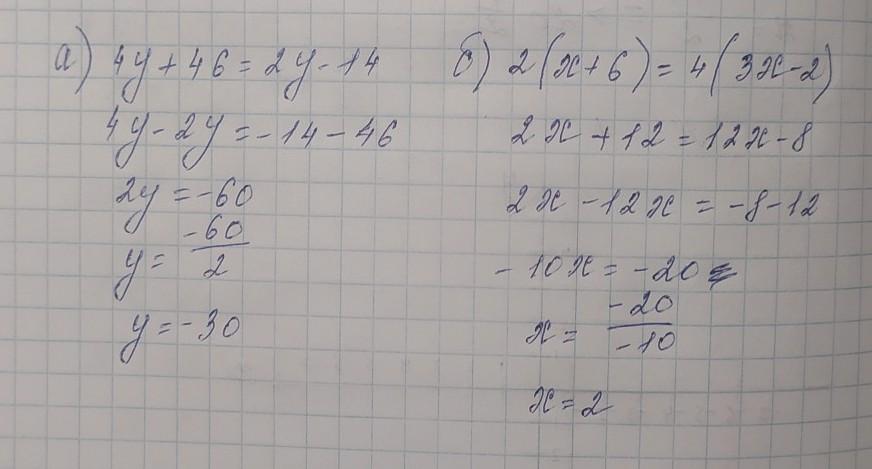 а) 4y + 46 = 2y - 14
4y - 2y = -14 - 46
2y = -60
y = -60/2
y = -30
б) 2(x + 6) = 4(3x - 2)
2x + 12 = 12x - 8
2x - 12x = -8 - 12
-10x = -20
x = -20/-10
x = 2